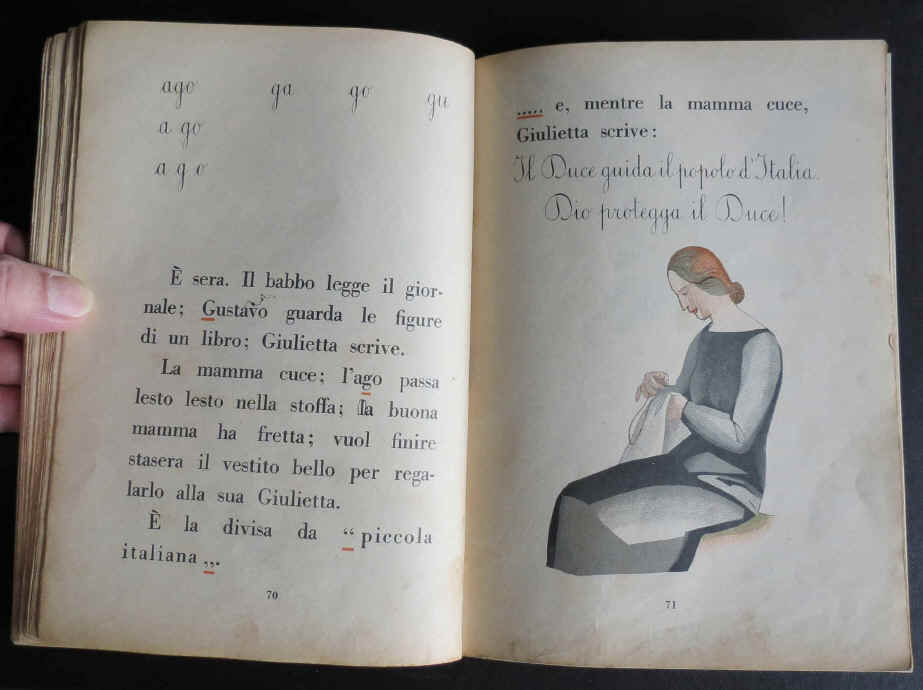 ago ga go gu
a go
a g o
È sera. Il babbo legge il gior-
nale; Gustavo guarda le figure
di un libro; Giulietta scrive.
La mamma cuce; l'ago passa
lesto lesto nella stoffa; la buona
mamma ha fretta; vuol finire
stasera il vestito bello per rega-
larlo alla sua Giulietta.
È la divisa da “piccola
italiana„.
70
..... e, mentre la mamma cuce,
Giulietta scrive:
Il Duce guida il popolo d'Italia.
Dio protegga il Duce!
71